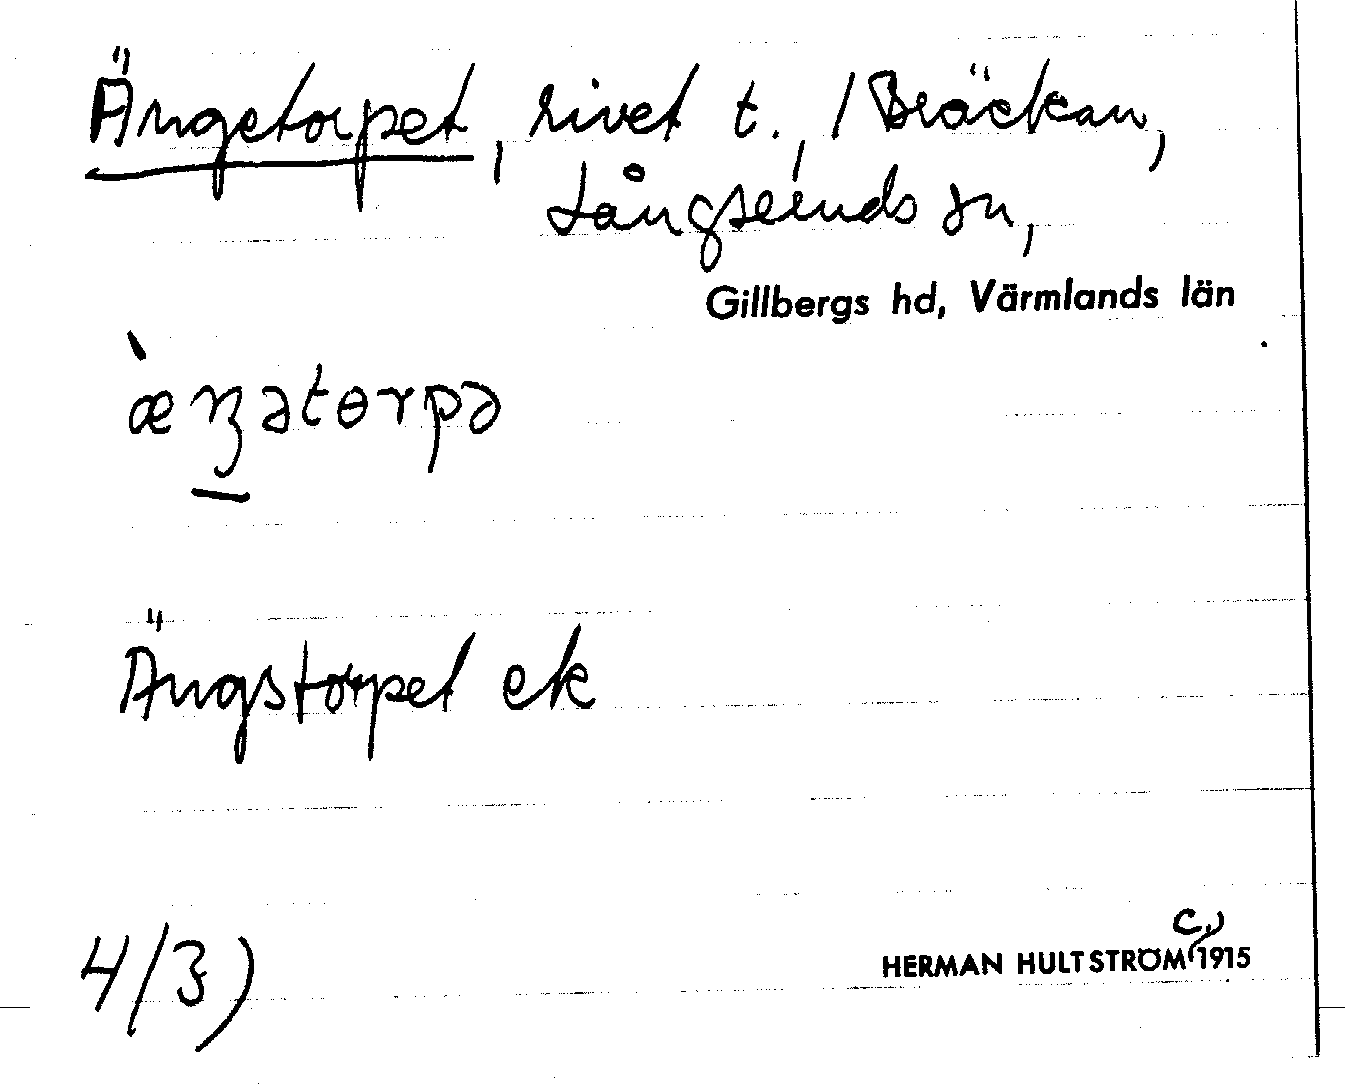 Ängetorpet, rivet t., / Bräckan,
Långseruds sn,
Gillbergs hd, Värmlands län
æ̀ŋətɵrpə
Ängstorpet ek
4/3)
c.
HERMAN HULTSTRÖM 1915